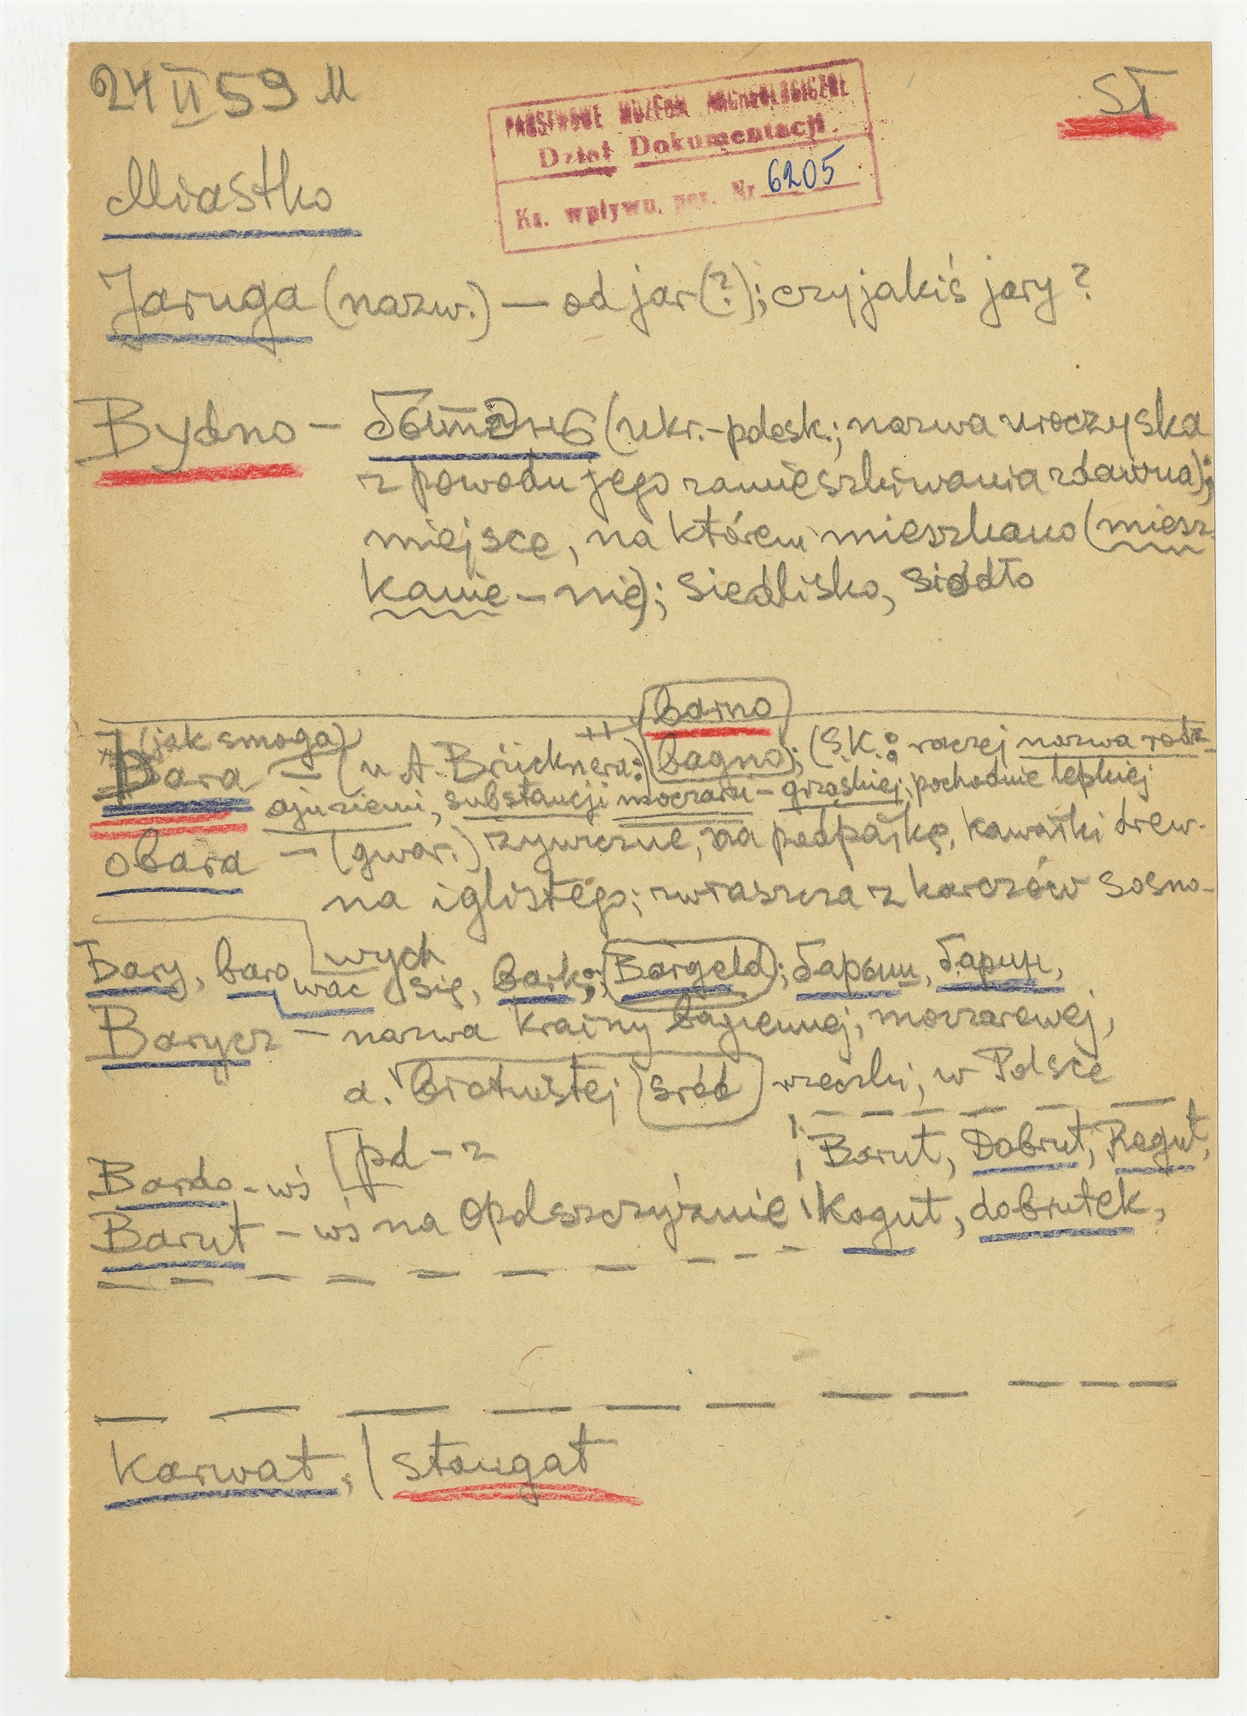 24 II 59 M
SŁ
PAŃSTWOWE MUZEUM ARCHEOLOGICZNE
Dział Dokumentacji
Ks. wpływu, poz. Nr 6205
Miastko
Jaruga (nazw.) — od jar (?); czy jakiś jary?
Bydno — (ukr.-polesk.; nazwa uroczyska
z powodu jego zamieszkiwania zdawna);
miejsce, na którem mieszkano (miesz
kanie — nie); siedlisko, siodło
barno
(jak smoga)
Bara — (u A. Brücknera:) bagno; (S.K.: raczej nazwa rodz-
aju ziemi, substancji moczaru — grząskiej; pochodnie lepkiej
obara — (gwar.) żywiczne, na podpałkę, kawałki drew-
na iglistego; zwłaszcza z karczów sosno-
wych
Bary, barować się, bark; (Bargeld); барыш, барин,
Barycz — nazwa krainy bagiennej, moczarowej,
a. błotnistej (śród) rzeczki; w Polsce
Bardo — wś [pd — z
Barut, Dobrut, Regut,
Barut — wś na Opolszczyźnie
Kogut, dobrutek,
Karwat, | staugat